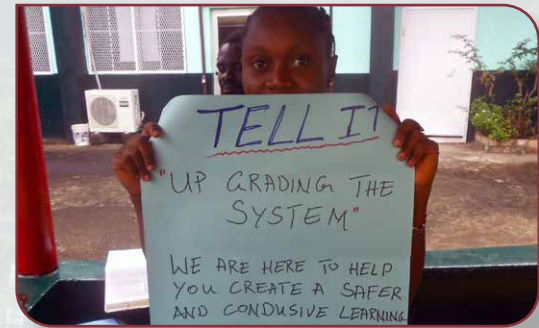 TELL IT
"UP GRADING THE
SYSTEM"
WE ARE HERE TO HELP
YOU CREATE A SAFER
AND CONDUSIVE LEARNING